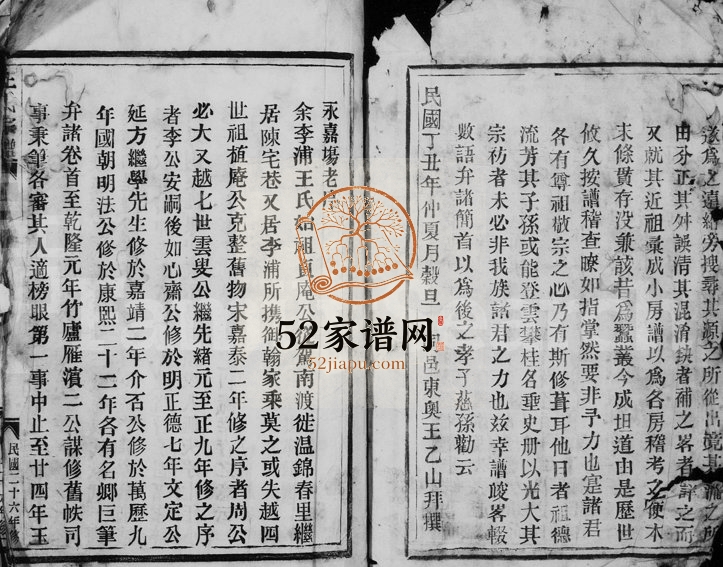 遂為之遺綺旁搜尋其源之所從出竟其流之所
由分正其舛誤清其混淆缺者補之畧者詳之而
又就其近祖彙成小房譜以為各房稽考之便本
末條貫存没兼該昔為蠶叢今成坦道由是歷世
攸久按譜稽查瞭如指掌然要非予力也寔諸君
各有尊祖敬宗之心乃有斯修葺耳他日者祖德
流芳其子孫或能登雲攀桂名垂史册以光大其
宗祊者未必非我族諸君之力也玆幸譜竣畧輟
數語弁諸簡首以為後之孝子慈孫勸云
民國丁丑年仲夏月穀旦 邑東奥王乙山拜撰
永嘉塲老
余李浦王氏始祖 庵公 駕南渡徙温錦春里繼
居陳宅巷又居李浦所携御翰家乘莫之或失越四
世祖植庵公克整舊物宋嘉泰二年修之序者周公
必大又越七世雲叟公繼先緒元至正九年修之序
者李公安嗣後如心齋公修於明正德七年文定公
延方繼學先生修於嘉靖二年介石公修於萬歷九
年國朝明法公修於康熙二十二年各有名卿巨筆
弁諸卷首至乾隆元年竹廬雁濱二公謀修舊帙司
事秉筆各審其人適榜眼第一事中止至廿四年玉
民國二十六年修
52家谱网
52jiapu.com